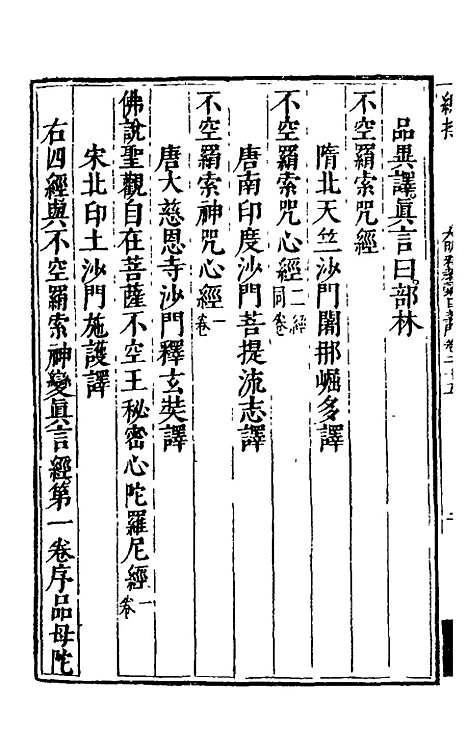 品異譯眞言曰部林
不空羂索咒經
隋北天竺沙門闍那崛多譯
不空羂索咒心經二經同卷
唐南印度沙門菩提流志譯
不空羂索神咒心經一卷
唐大慈恩寺沙門釋玄奘譯
佛說聖觀自在菩薩不空王秘密心陀羅尼經一卷
宋北印土沙門施護譯
右四經與不空羂索神變眞言經第一卷序品母陀